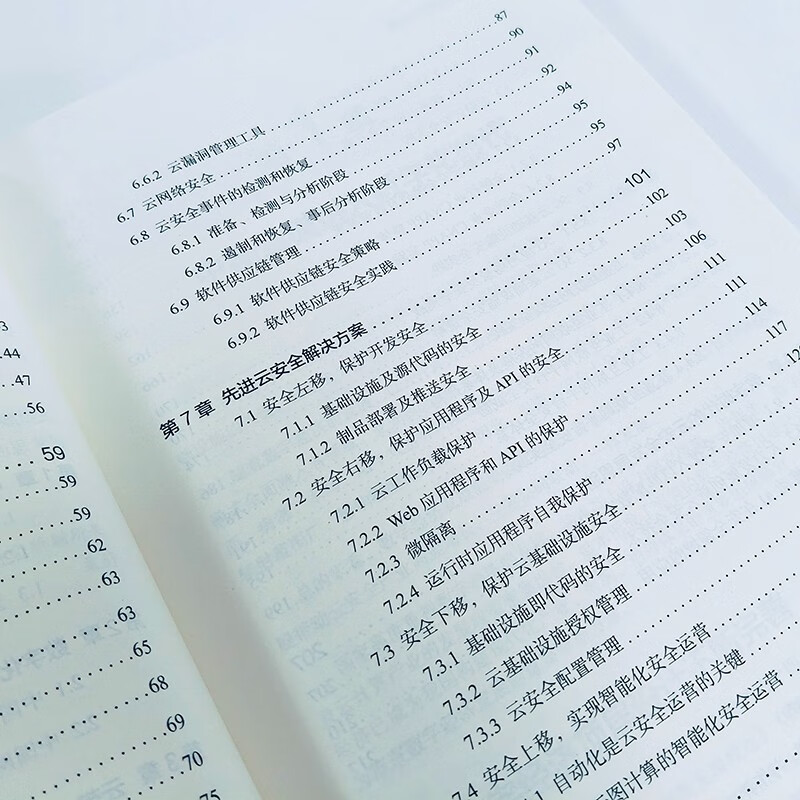 3
44
47
56
59
59
59
62
63
63
65
68
69
70
75
6.6.2 云漏洞管理工具 87
6.7 云网络安全 90
6.8 云安全事件的检测和恢复 91
6.8.1 准备、检测与分析阶段 92
6.8.2 遏制和恢复、事后分析阶段 94
6.9 软件供应链管理 95
6.9.1 软件供应链安全策略 95
6.9.2 软件供应链安全实践 97
第7章 先进云安全解决方案 101
7.1 安全左移，保护开发安全 102
7.1.1 基础设施及源代码的安全 103
7.1.2 制品部署及推送安全 106
7.2 安全右移，保护应用程序及API的安全 111
7.2.1 云工作负载保护 111
7.2.2 Web应用程序和API的保护 114
7.2.3 微隔离 117
7.2.4 运行时应用程序自我保护
7.3 安全下移，保护云基础设施安全
7.3.1 基础设施即代码的安全
7.3.2 云基础设施授权管理
7.3.3 云安全配置管理
7.4 安全上移，实现智能化安全运营
自动化是云安全运营的关键
图计算的智能化安全运营